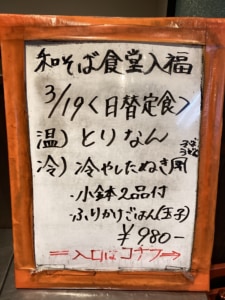 和そば食堂入福
3/19<日替定食>
温)とりなん
冷)冷やしたぬき風
・小鉢2品付
・ふりかけごはん(玉子)
¥980-
⇐入口はコチラ⇒